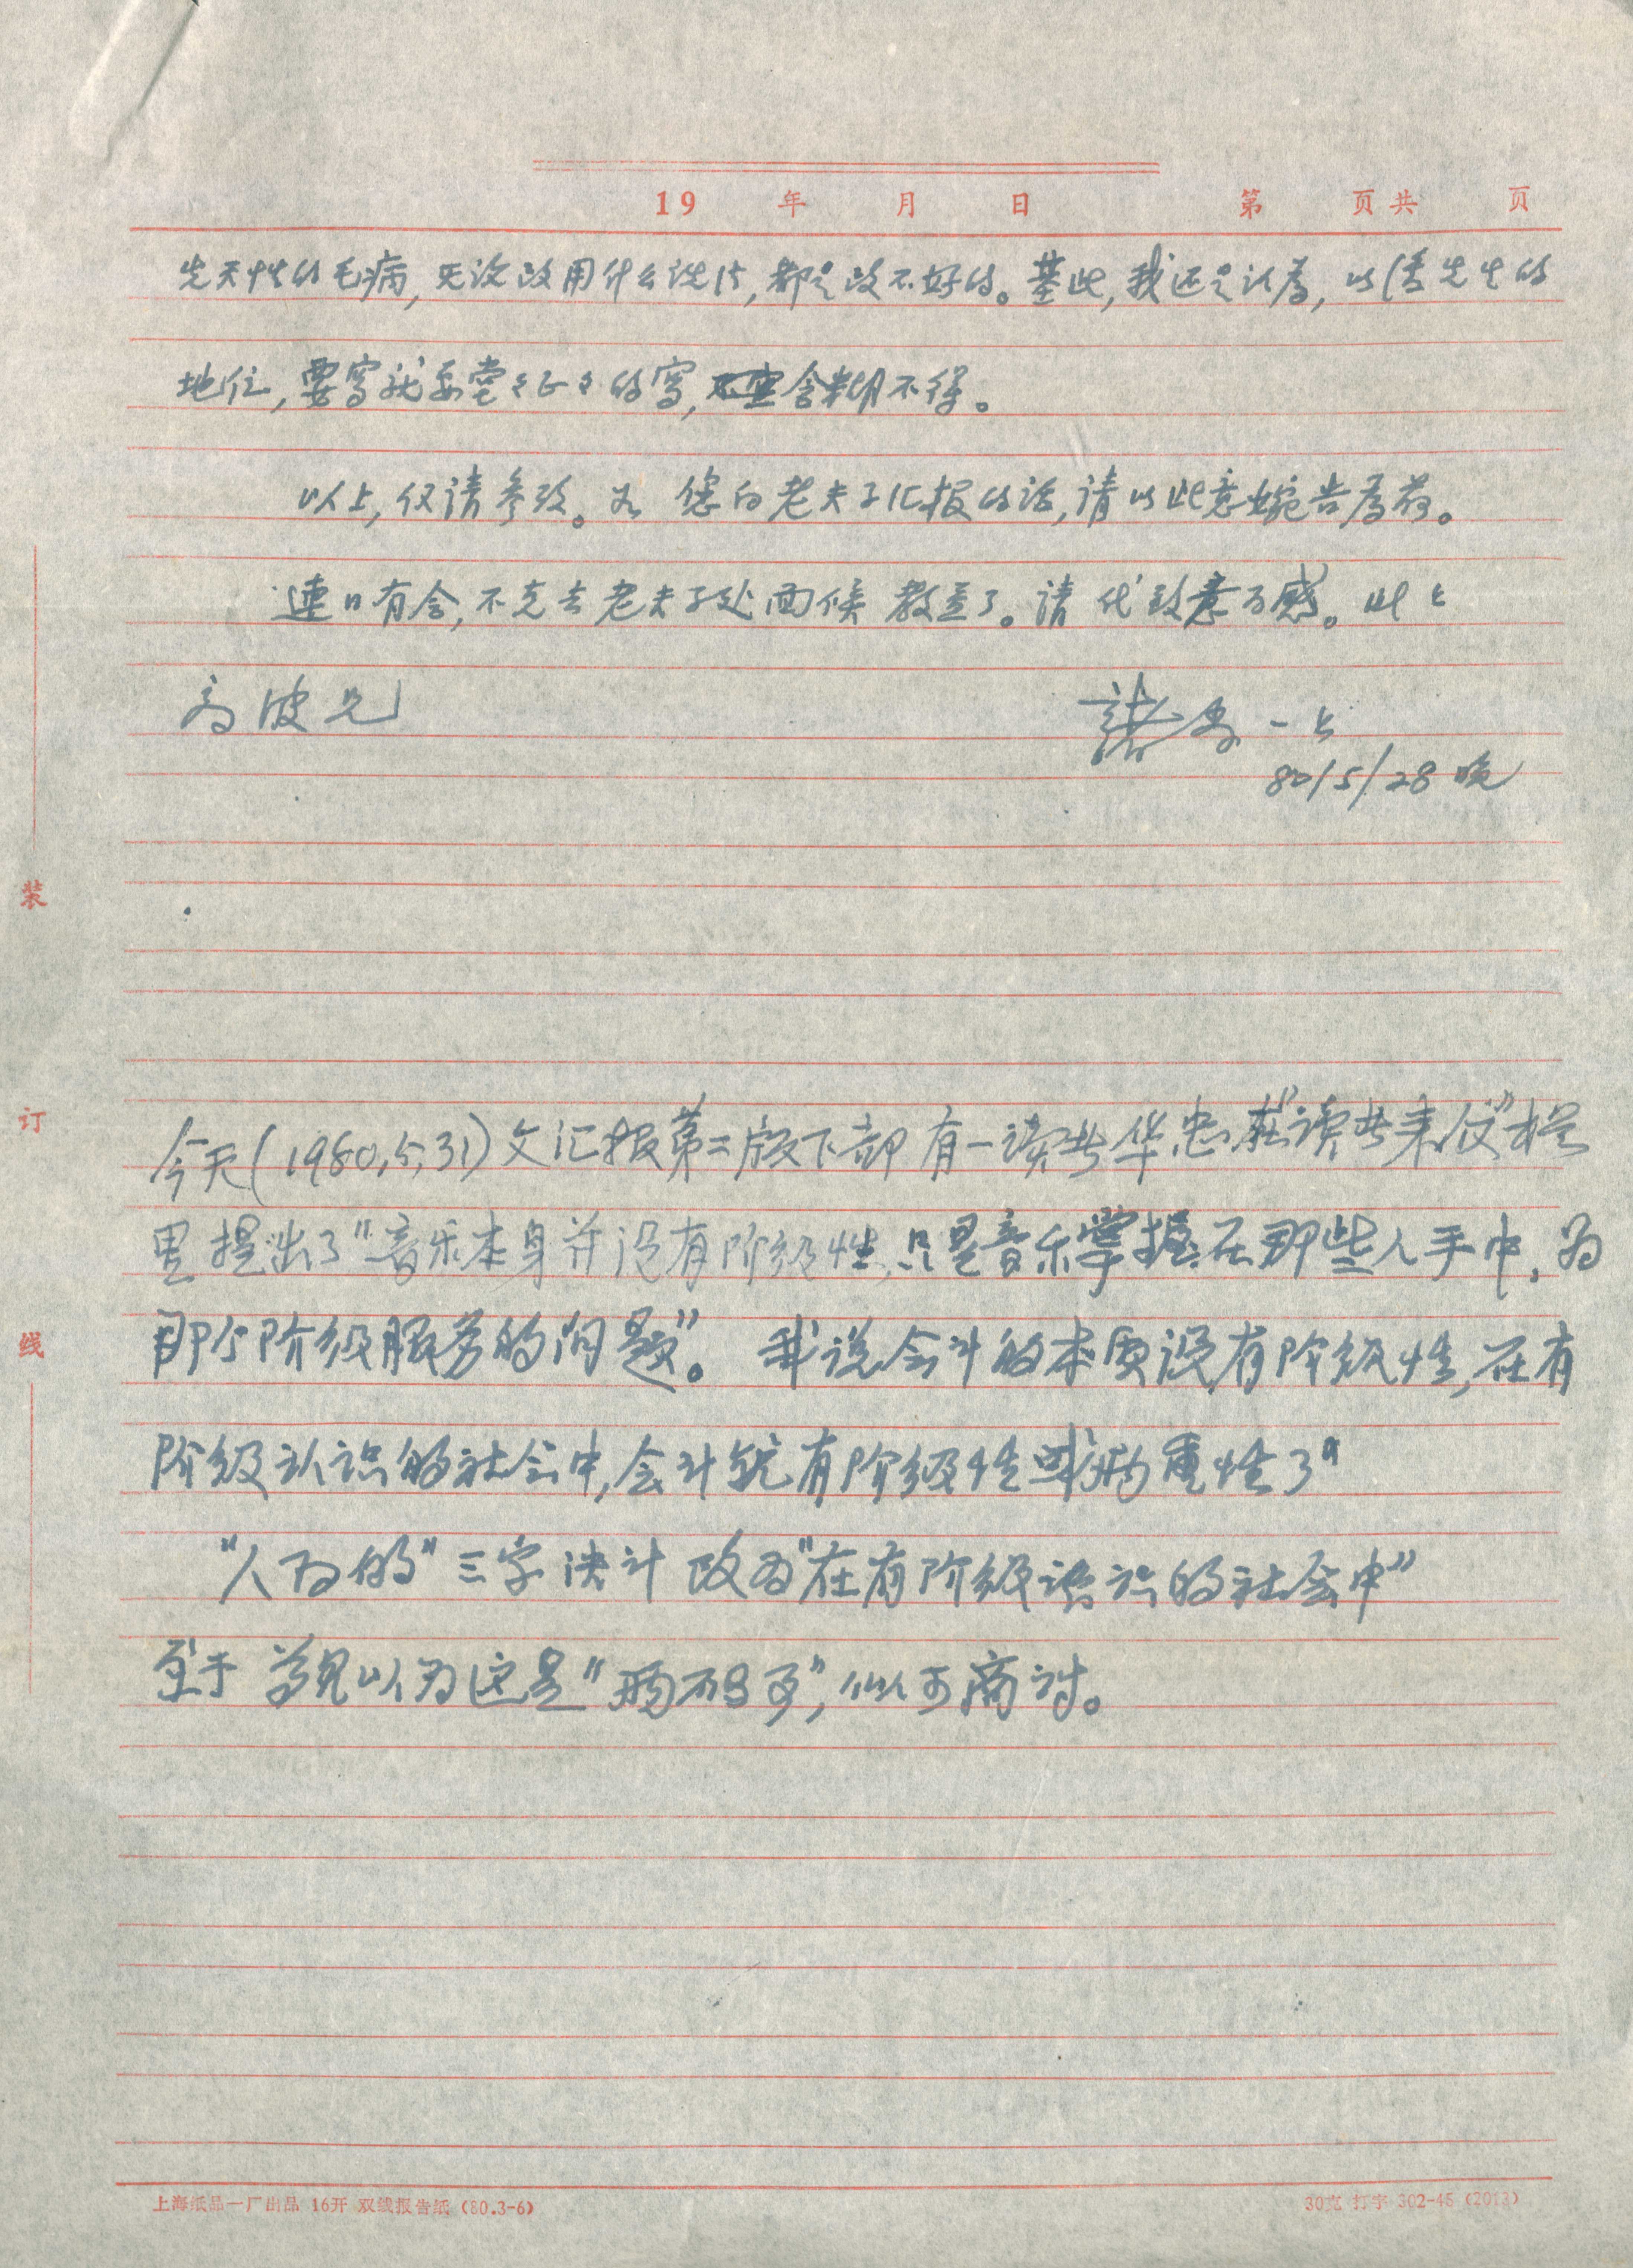 19 年 月 日 第 页共 页
先天性的毛病,无论改用什么说法,都是改不好的。基此,我还是认为,以潘先生的
地位,要写就要堂々正々的写,含糊不得。
以上,仅请参改。如 您向老夫子汇报的话,请以此意婉告为荷。
連日有会,不克去老夫子处面候 教益了。请代致意万感。此上
高波兄
諸 一上
80/5/28晚
今天(1980,5,31)文汇报第二版下部有一读者华忠在"读者来信"栏
里提出了"音乐本身并没有阶级性,只是音乐掌握在那些人手中,为
那个阶级服务的问题"。 我说会计的本质没有阶级性,在有
阶级认识的社会中,会计就有阶级性或两重性了"
"人为的"三字决计改为"在有阶级認识的社会中"
至于 首见以为这是"两码事",似可商讨。
装
订
线
上海纸品一厂出品 16开 双线报告纸 (80.3-6)
30克 打字 302-46 (2013)